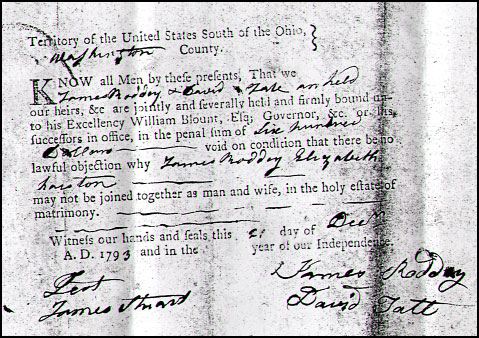 Territory of the United States South of the Ohio,
Washington County.
KNOW all Men by these presents, That we
James Roddey & David Tate are held
our heirs, &c are jointly and severally held and firmly bound un-
to his Excellency William Blount, Esq; Governor, &c. or his
successors in office, in the penal sum of Six hundred
void on condition that there be no
lawful objection why James Roddey Elizabeth
may not be joined together as man and wife, in the holy estate of
matrimony.
Witness our hands and seals this 2 day of Decr
A. D. 1793 and in the year of our Independence,
James Roddey
Test
James Stuart
David Tatt